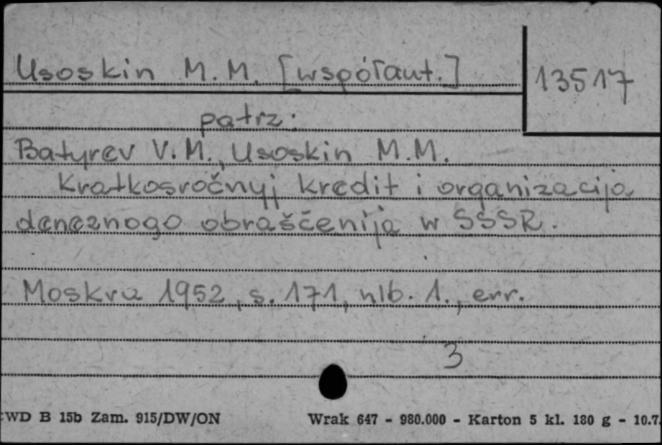 Usoskin M.M. [współaut.]
13517
patrz:
Batyrev V.M., Usoskin M.M.
Kratkosročnyj kredit i organizacija
deneznogo obraščenija w SSSR.
Moskva 1952, s. 171, nlb. 1., err.
3
WD B 15b Zam. 915/DW/ON
Wrak 647 - 980.000 - Karton 5 kl. 180 g - 10.7